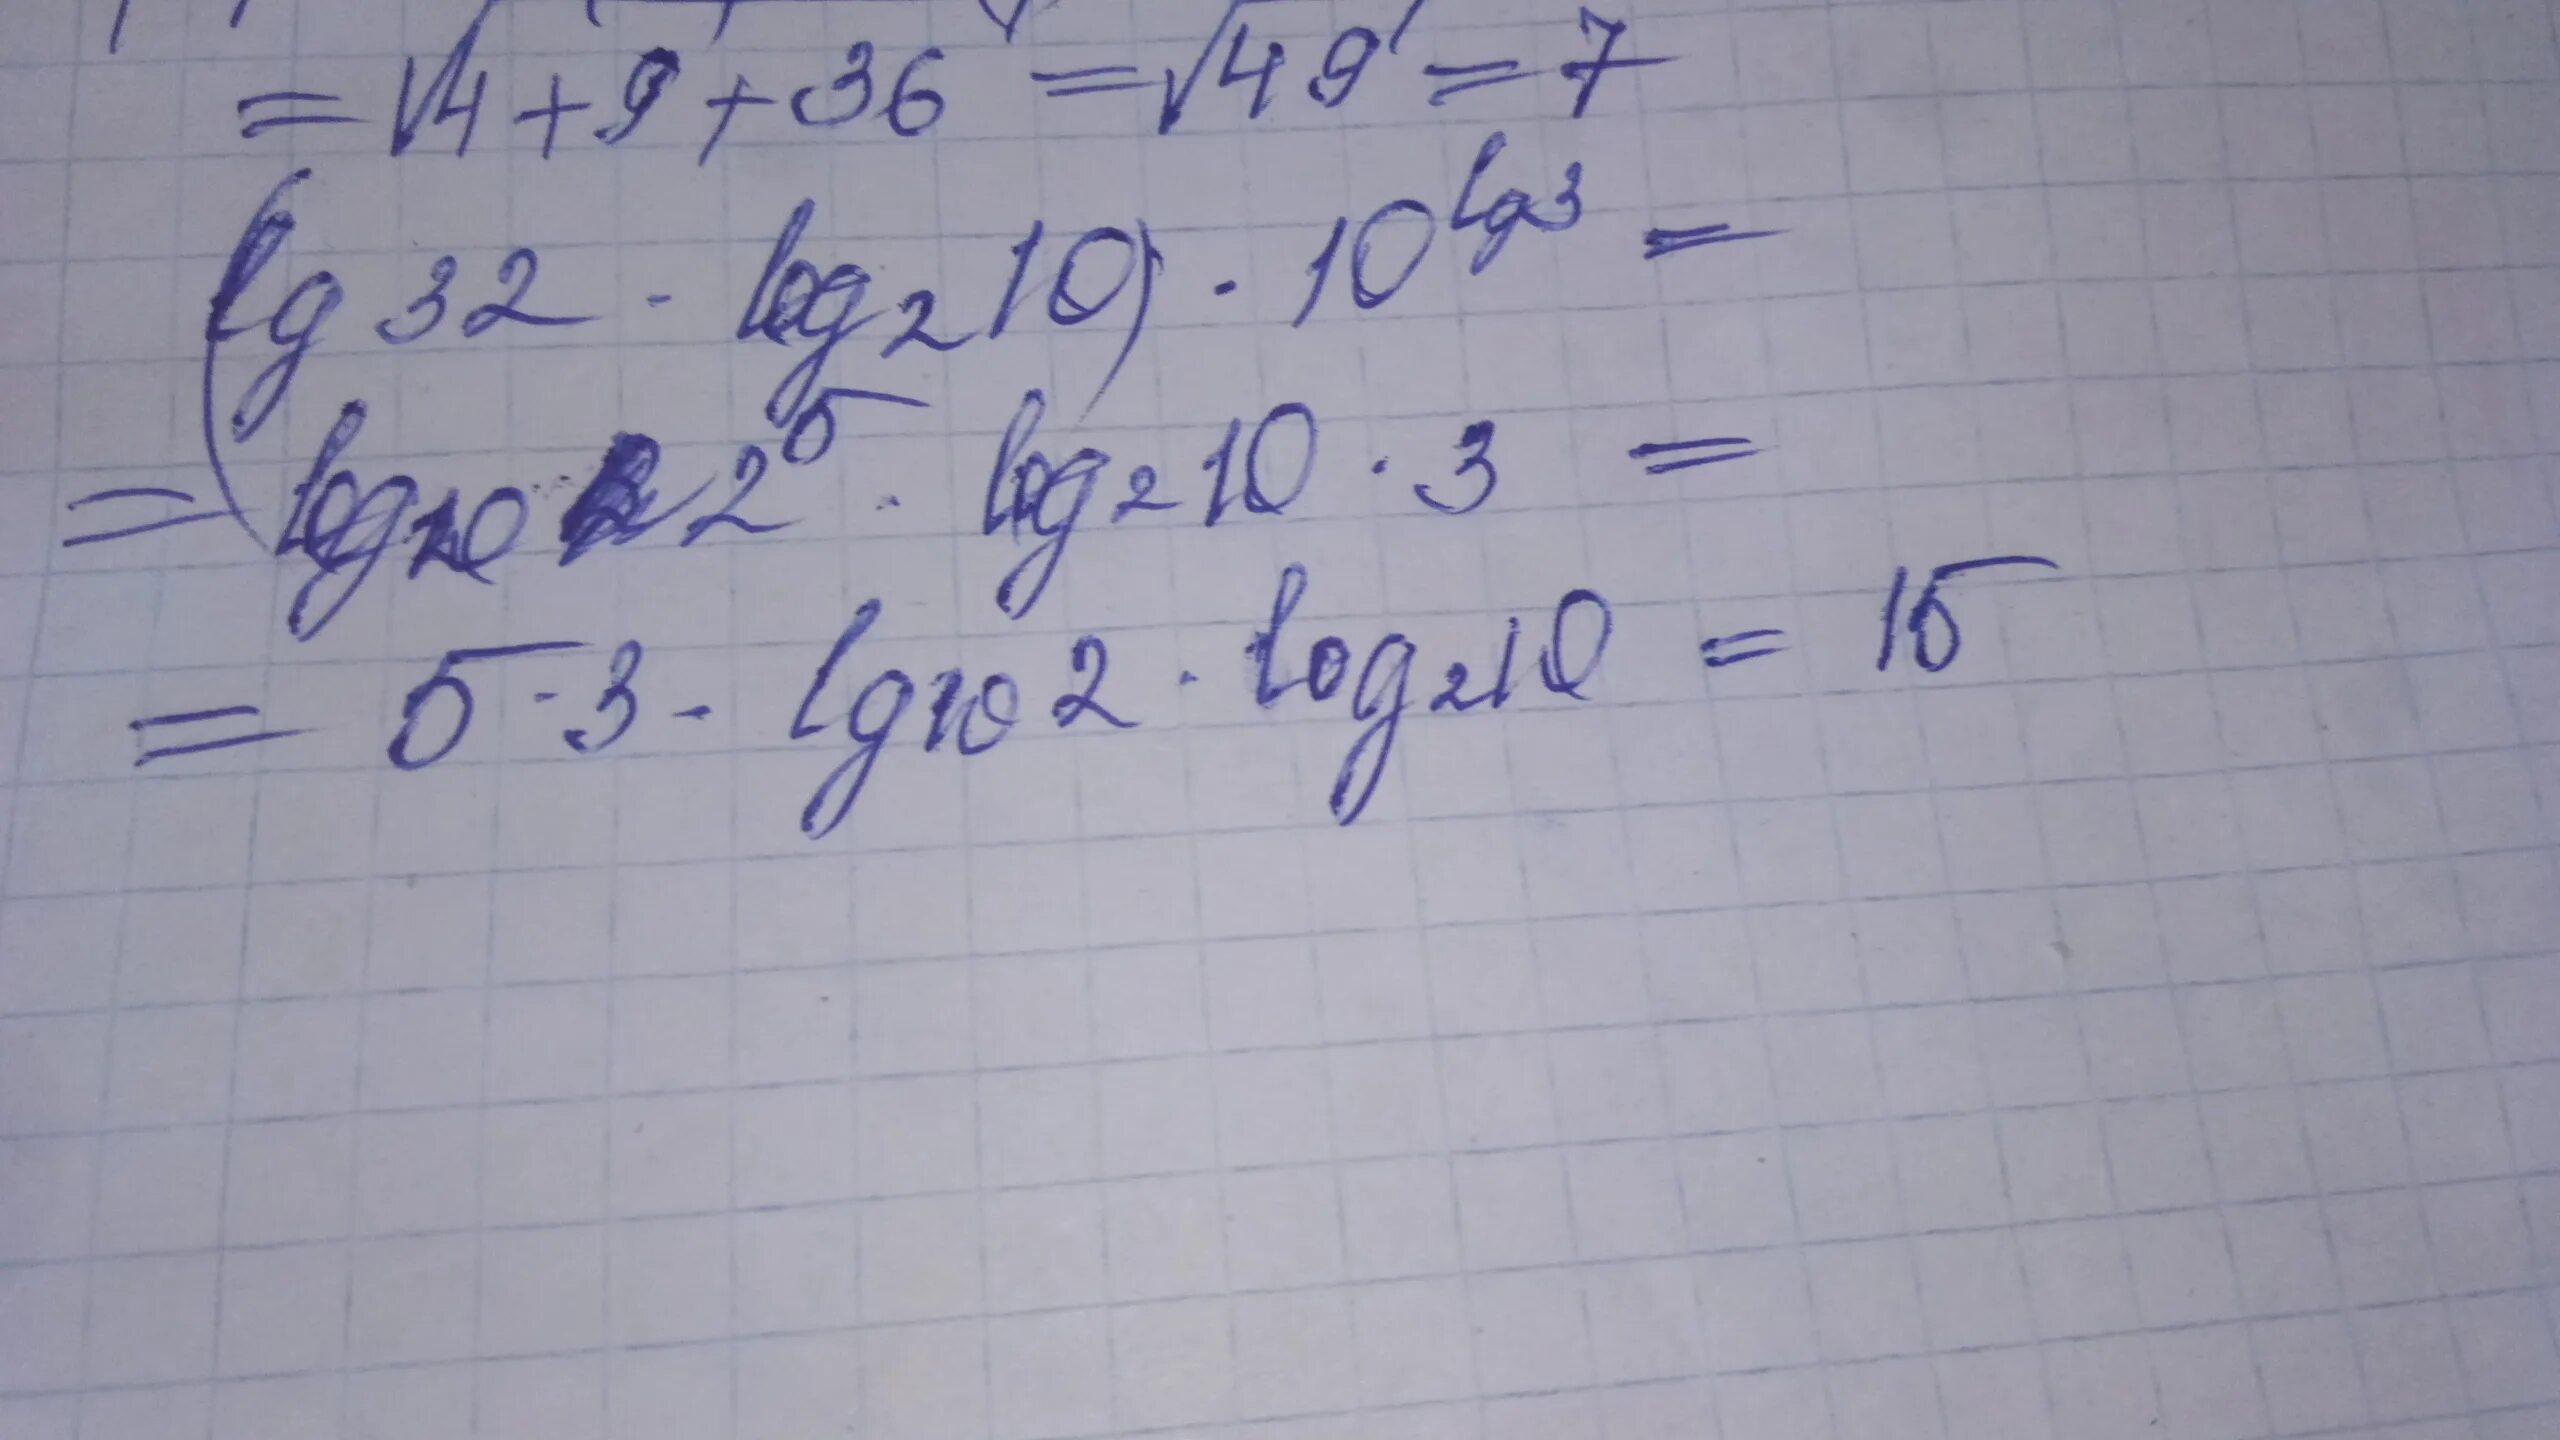 = √4 + 9 + 36 = √49 = 7
(lg 32 · log₂ 10) · 10^lg 3 =
= log₁₀ 2⁵ · log₂ 10 · 3 =
= 5 · 3 · lg₁₀ 2 · log₂ 10 = 15